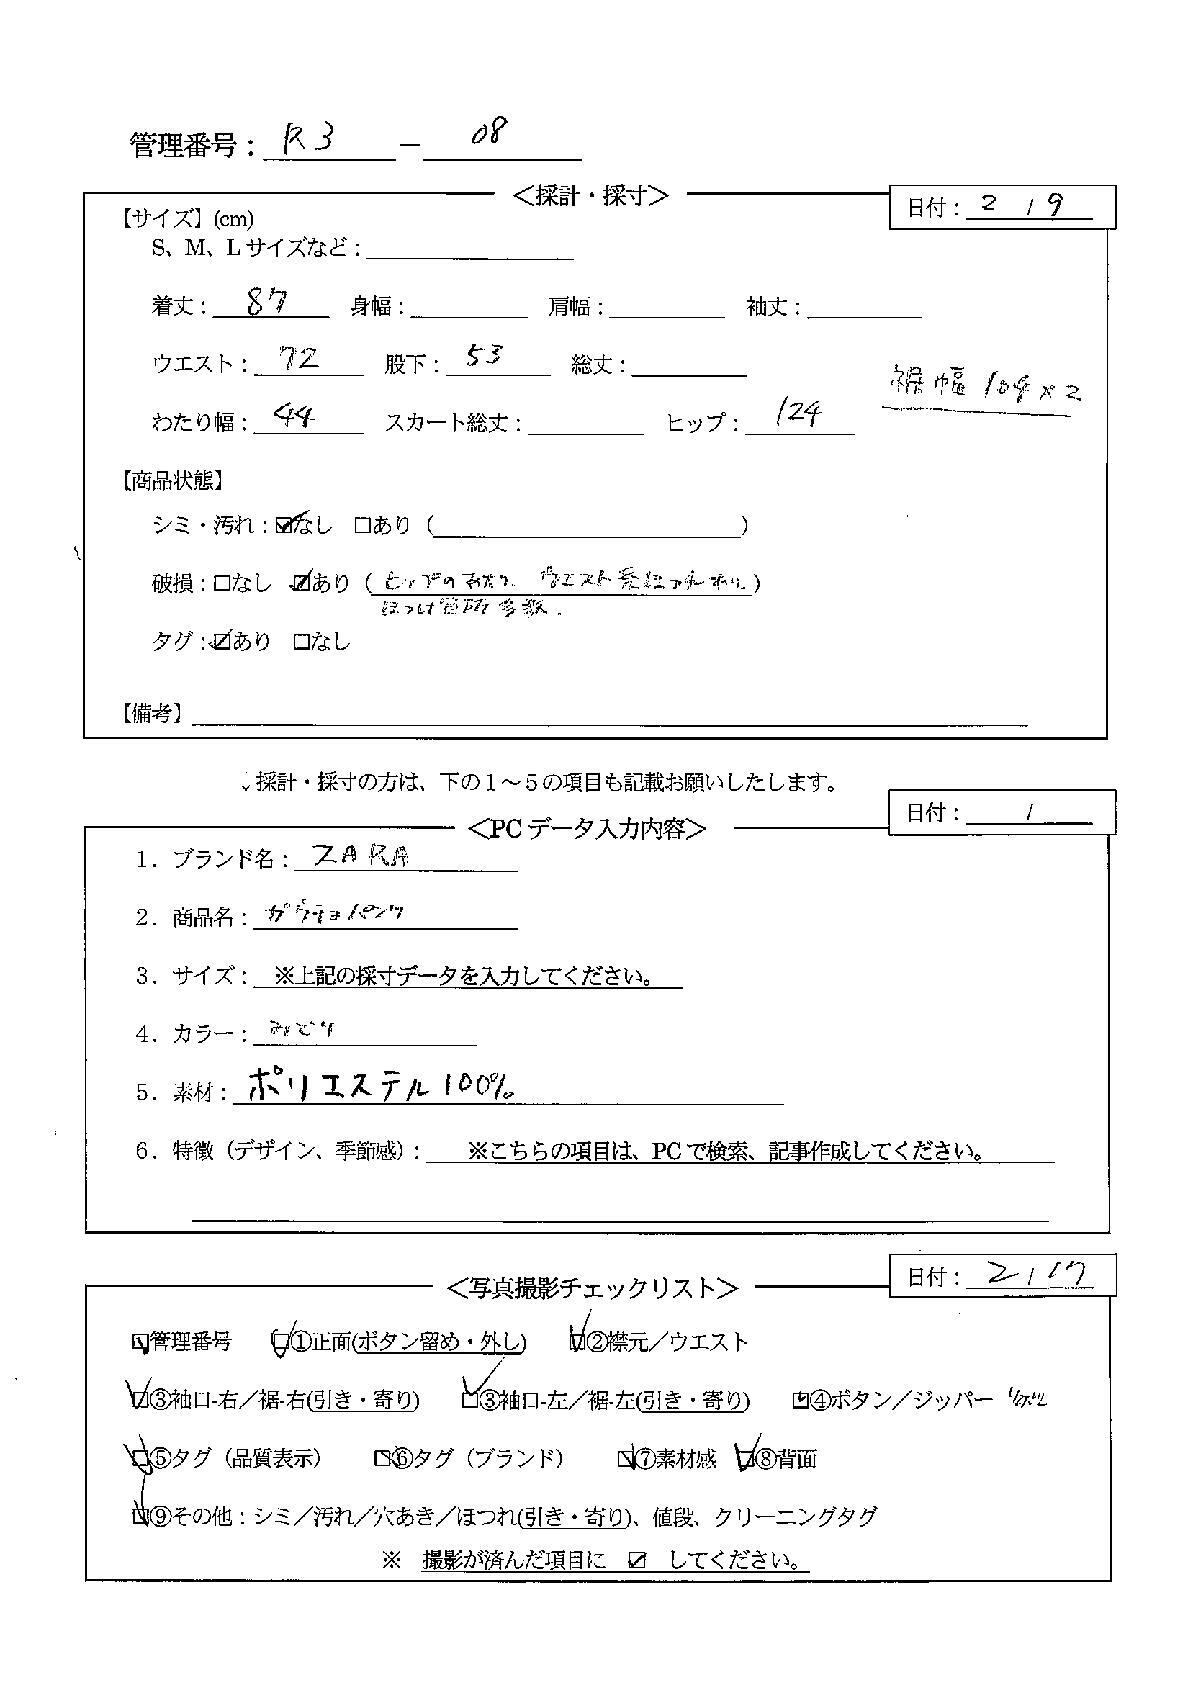 管理番号：R3 － 08
＜採計・採寸＞
日付：2 / 9
【サイズ】(cm)
S、M、Lサイズなど：
着丈：87 身幅： 肩幅： 袖丈：
ウエスト：72 股下：53 総丈：
裾幅 104×2
わたり幅：44 スカート総丈： ヒップ：124
【商品状態】
シミ・汚れ：☑なし □あり（ ）
破損：□なし ☑あり（ヒップの ウエスト ）
ほつれ箇所多数.
タグ：☑あり □なし
【備考】
採計・採寸の方は、下の１～５の項目も記載お願いしたします。
日付： /
＜PCデータ入力内容＞
1．ブランド名：ZARA
2．商品名：ガウチョパンツ
3．サイズ： ※上記の採寸データを入力してください。
4．カラー：みどり
5．素材：ポリエステル100%
6．特徴（デザイン、季節感）： ※こちらの項目は、PCで検索、記事作成してください。
＜写真撮影チェックリスト＞
日付：2 / 17
☑管理番号 ☑①正面(ボタン留め・外し) ☑②襟元／ウエスト
☑③袖口-右／裾-右(引き・寄り) ☑③袖口-左／裾-左(引き・寄り) ☑④ボタン／ジッパー
☑⑤タグ（品質表示） ☑⑥タグ（ブランド） ☑⑦素材感 ☑⑧背面
☑⑨その他：シミ／汚れ／穴あき／ほつれ(引き・寄り)、値段、クリーニングタグ
※ 撮影が済んだ項目に ☑ してください。